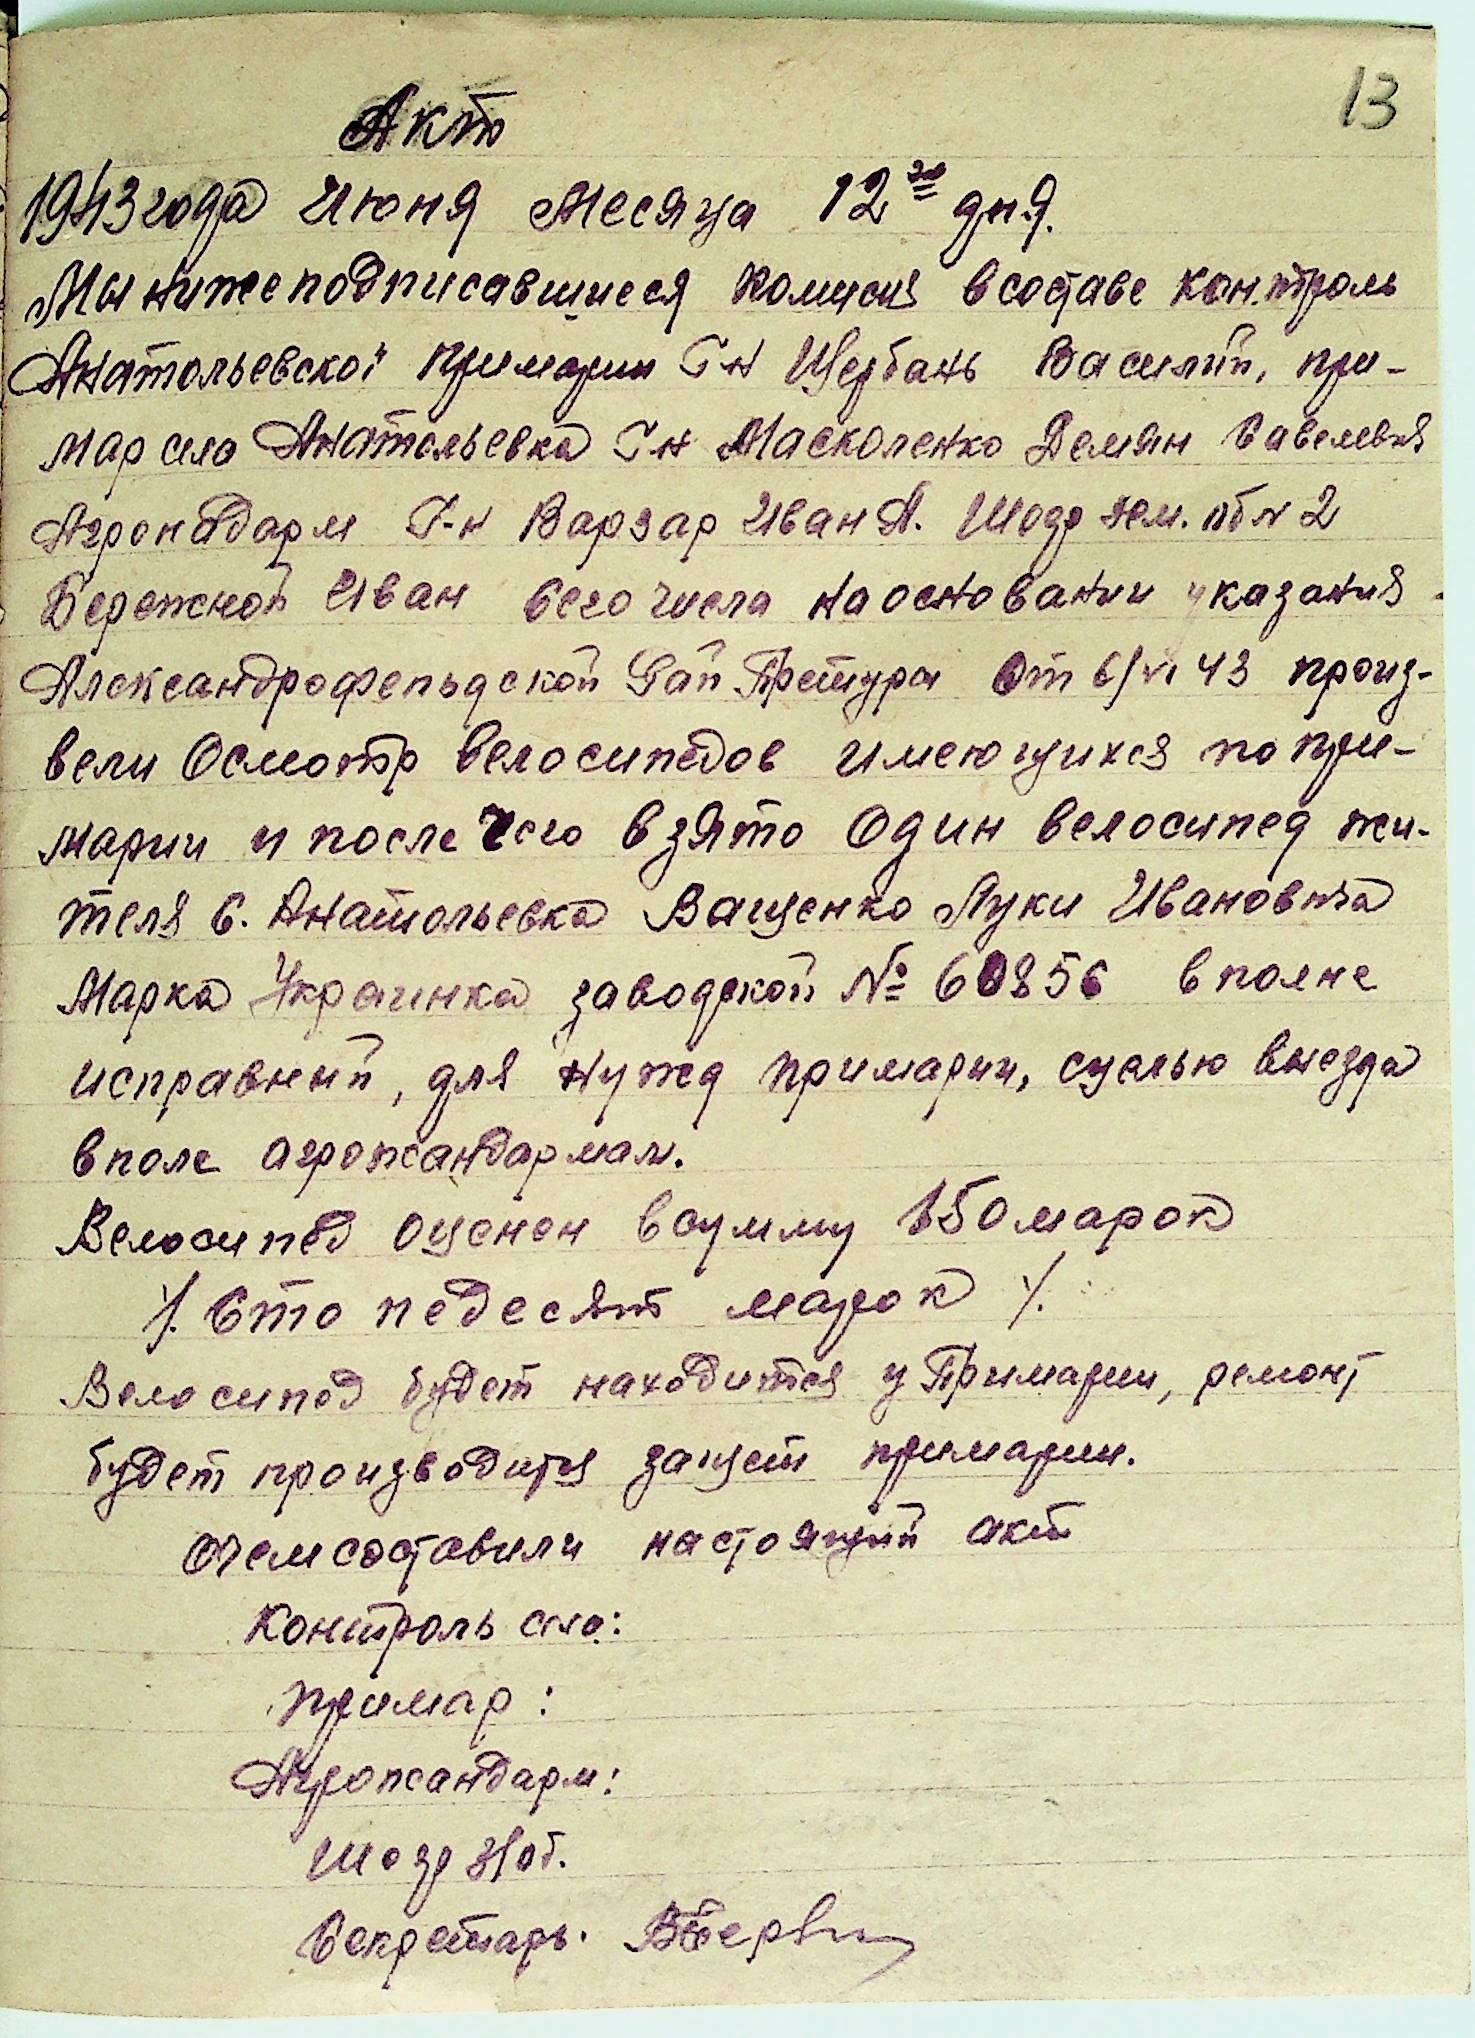 13
Акт
1943 года Июня Месяца 12го дня.
Мы нижеподписавшиеся Комисия в составе контроль
Анатольевской примарии Г-н Щербань Василий, при-
мар села Анатольевка Г-н Масколенко Демян Савелевич
Агрожадарм Г-н Варзар Иван А. Шодр зем. об N 2
Бережной Иван Сего числа на основании указания
Александрофельдской Рай Претуры От 6/VI 43 произ-
вели Осмотр велосипедов имеющихся по при-
марии и после чего взято Один велосипед жи-
теля с. Анатольевка Ващенко Луки Ивановича
Марка Украинка заводской № 60856 вполне
исправный, для нужд примарии, с целью выезда
в поле агрожандармам.
Велосипед оценен в сумму 150 марок
/. Сто педесят марок /.
Велосипед будет находится у Примарии, ремонт
будет производится защет примарии.
О чем составили настоящий акт
Контроль села:
Примар:
Агрожандарм:
Шодр З/об.
Секретарь.